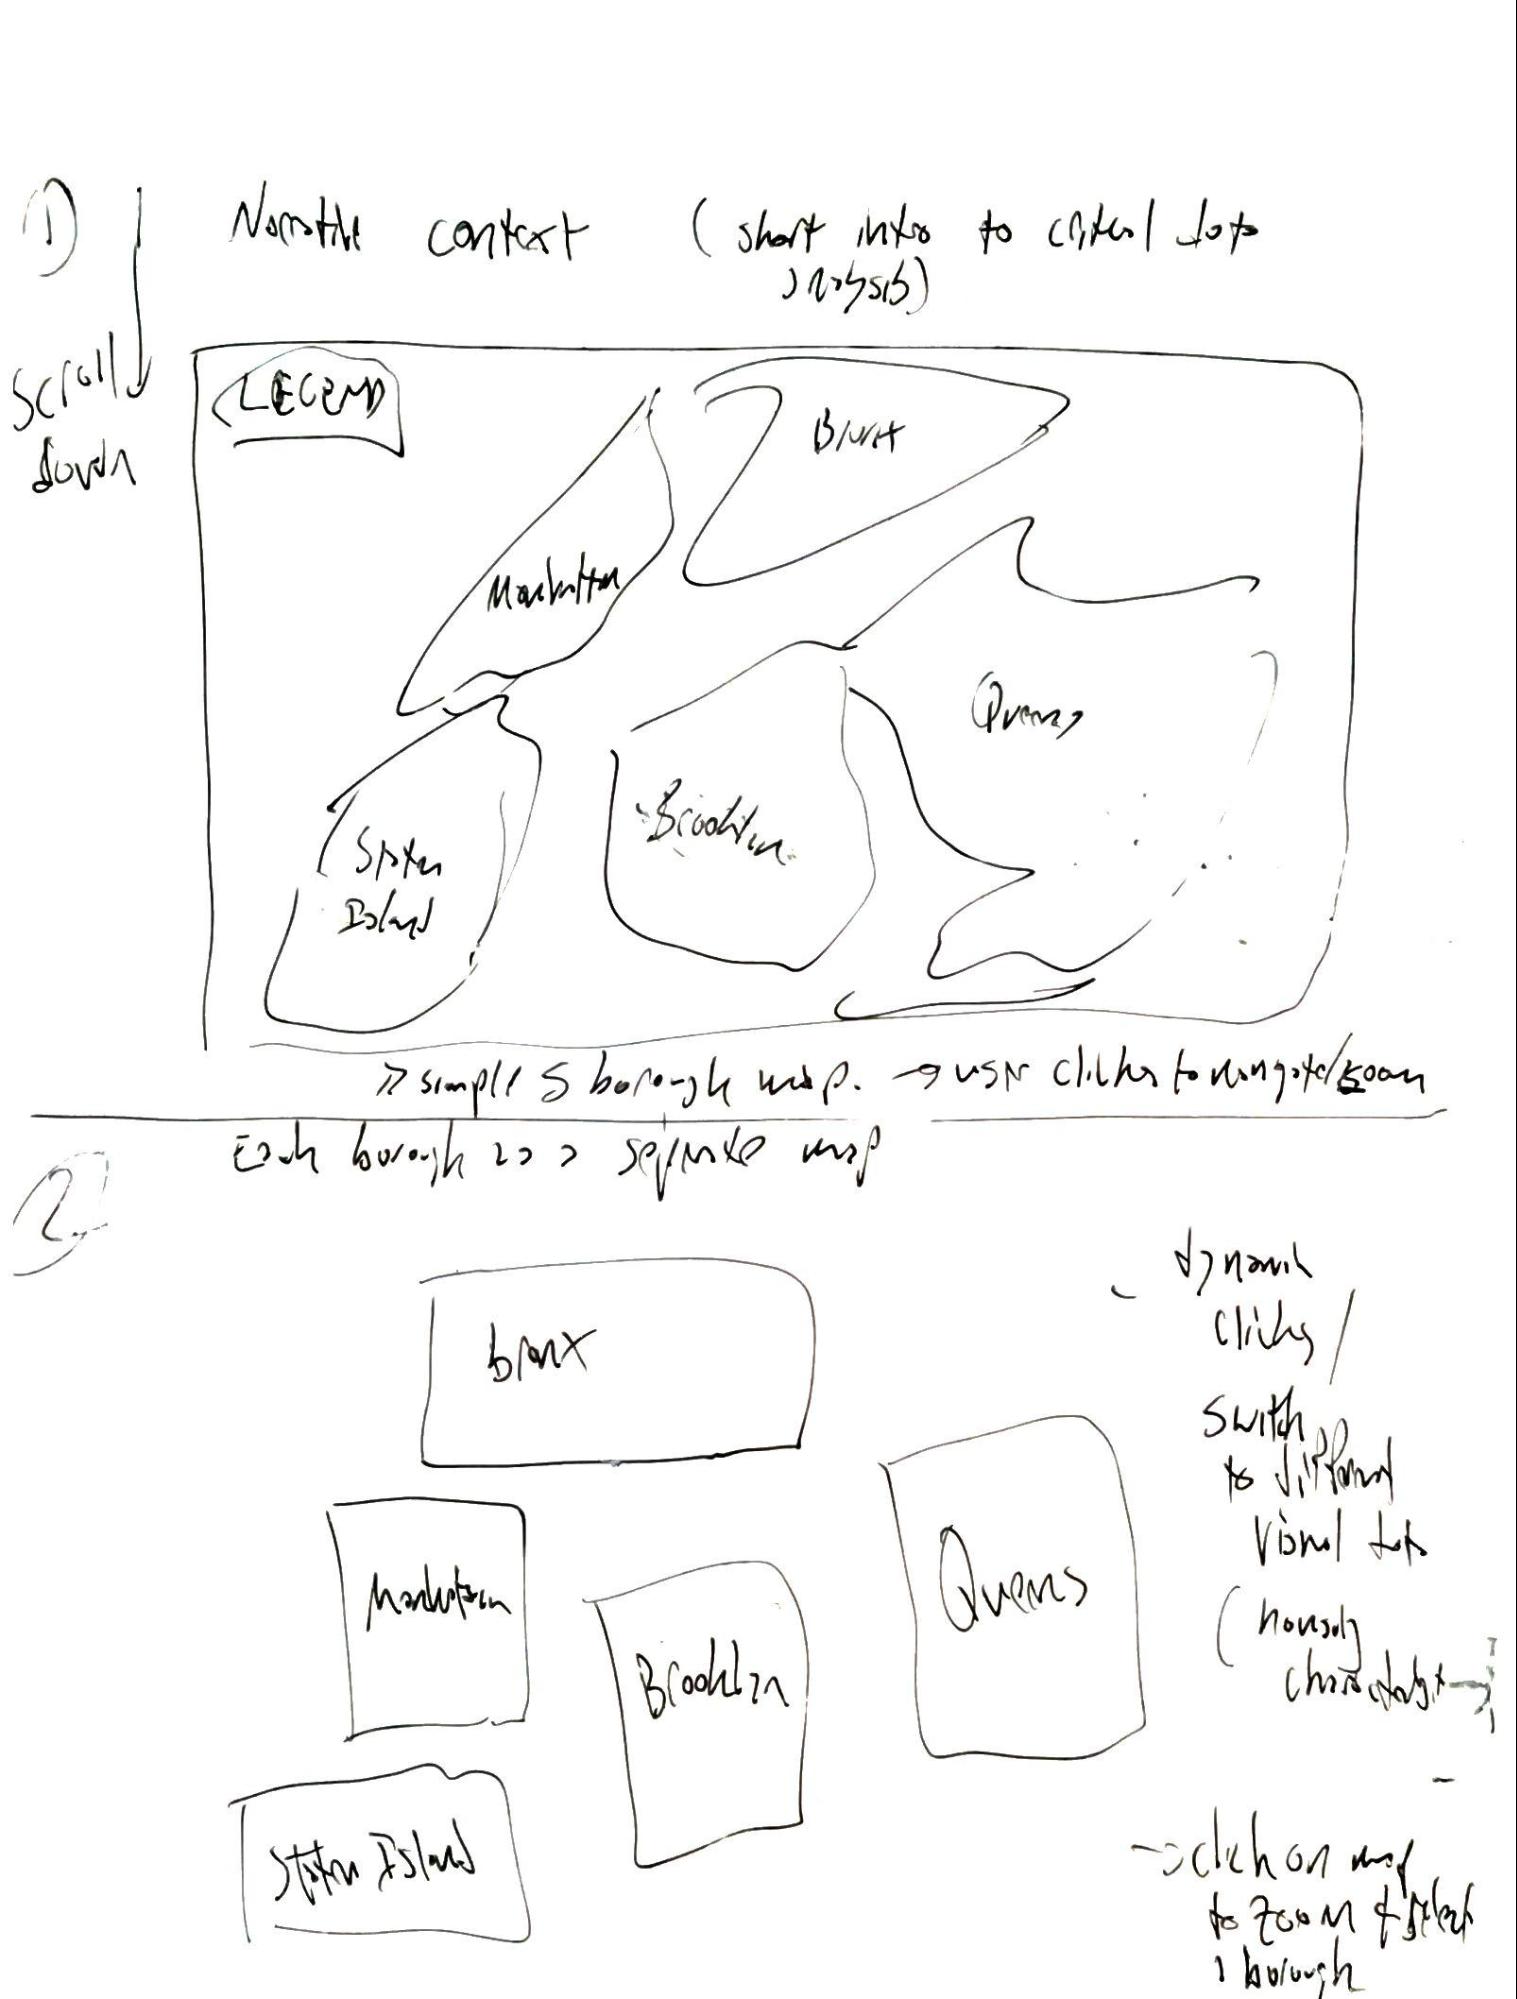 1
Narrative context (short intro to critical data
analysis)
Scroll
down
LEGEND
Bronx
Manhattan
Queens
Brooklyn
Staten
Island
simple 5 borough map. → user clicks to navigate/zoom
Each borough as a separate map
2.
bronx
Manhattan
Brooklyn
Queens
Staten Island
- dynamic
clicks /
switch
to different
visual data
(housing
→ click on map
to zoom & select
1 borough